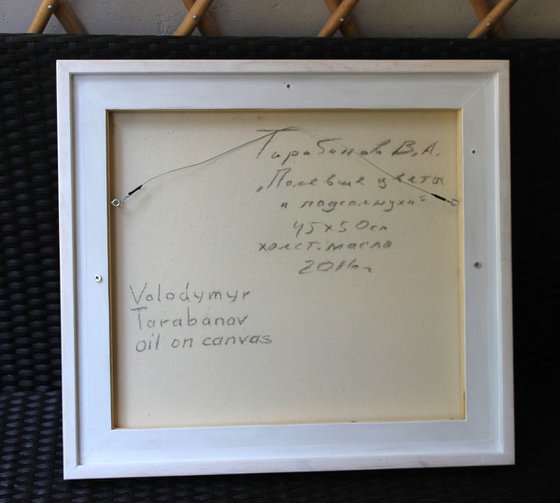 Тарабанов В.А.
„Полевые цветы
и подсолнухи“
45x50см
холст. масло
2016г
Volodymyr
Tarabanov
oil on canvas